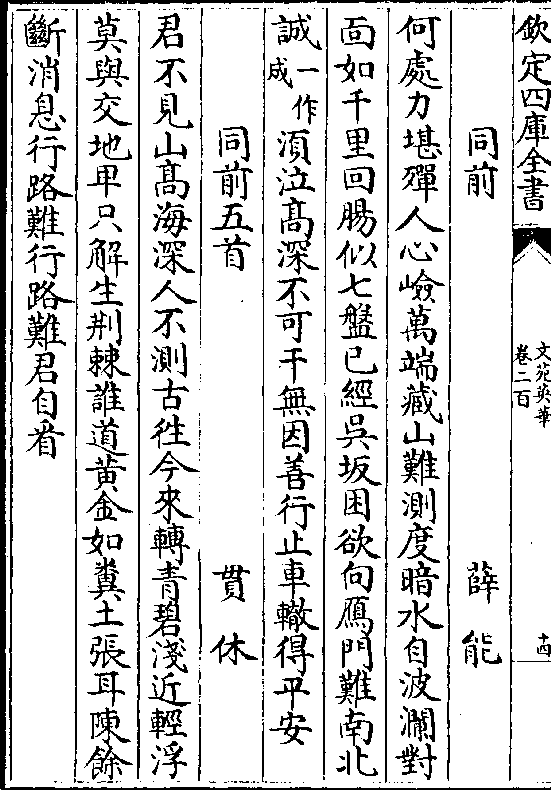 欽定四庫全書
文苑英華
卷二百
十四
同前 薛能
何處力堪殫人心嶮萬端藏山難測度暗水自波瀾對
面如千里回腸似七盤已經吳坂困欲向鴈門難南北
誠一作成須泣髙深不可干無因善行止車轍得平安
同前五首 貫休
君不見山髙海深人不測古徃今來轉青碧淺近輕浮
莫與交地甲只解生荆棘誰道黃金如糞土張耳陳餘
斷消息行路難行路難君自看